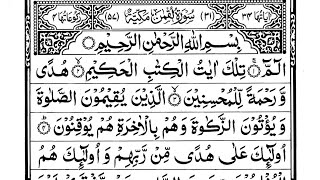 اٰیاتُهَا ۳۴ (۳۱) سُوْرَةُ لُقْمٰنَ مَكِّیَّةٌ (۵۷) رُكُوْعَاتُهَا ۴
بِسْمِ اللّٰهِ الرَّحْمٰنِ الرَّحِیْمِ
الٓمّٓ ۚ تِلْكَ اٰیٰتُ الْكِتٰبِ الْحَكِیْمِ ۙ هُدًی
وَّ رَحْمَةً لِّلْمُحْسِنِیْنَ ۙ الَّذِیْنَ یُقِیْمُوْنَ الصَّلٰوةَ
وَ یُؤْتُوْنَ الزَّكٰوةَ وَ هُمْ بِالْاٰخِرَةِ هُمْ یُوْقِنُوْنَ ؕ
اُولٰٓىِٕكَ عَلٰی هُدًی مِّنْ رَّبِّهِمْ وَ اُولٰٓىِٕكَ هُمُ